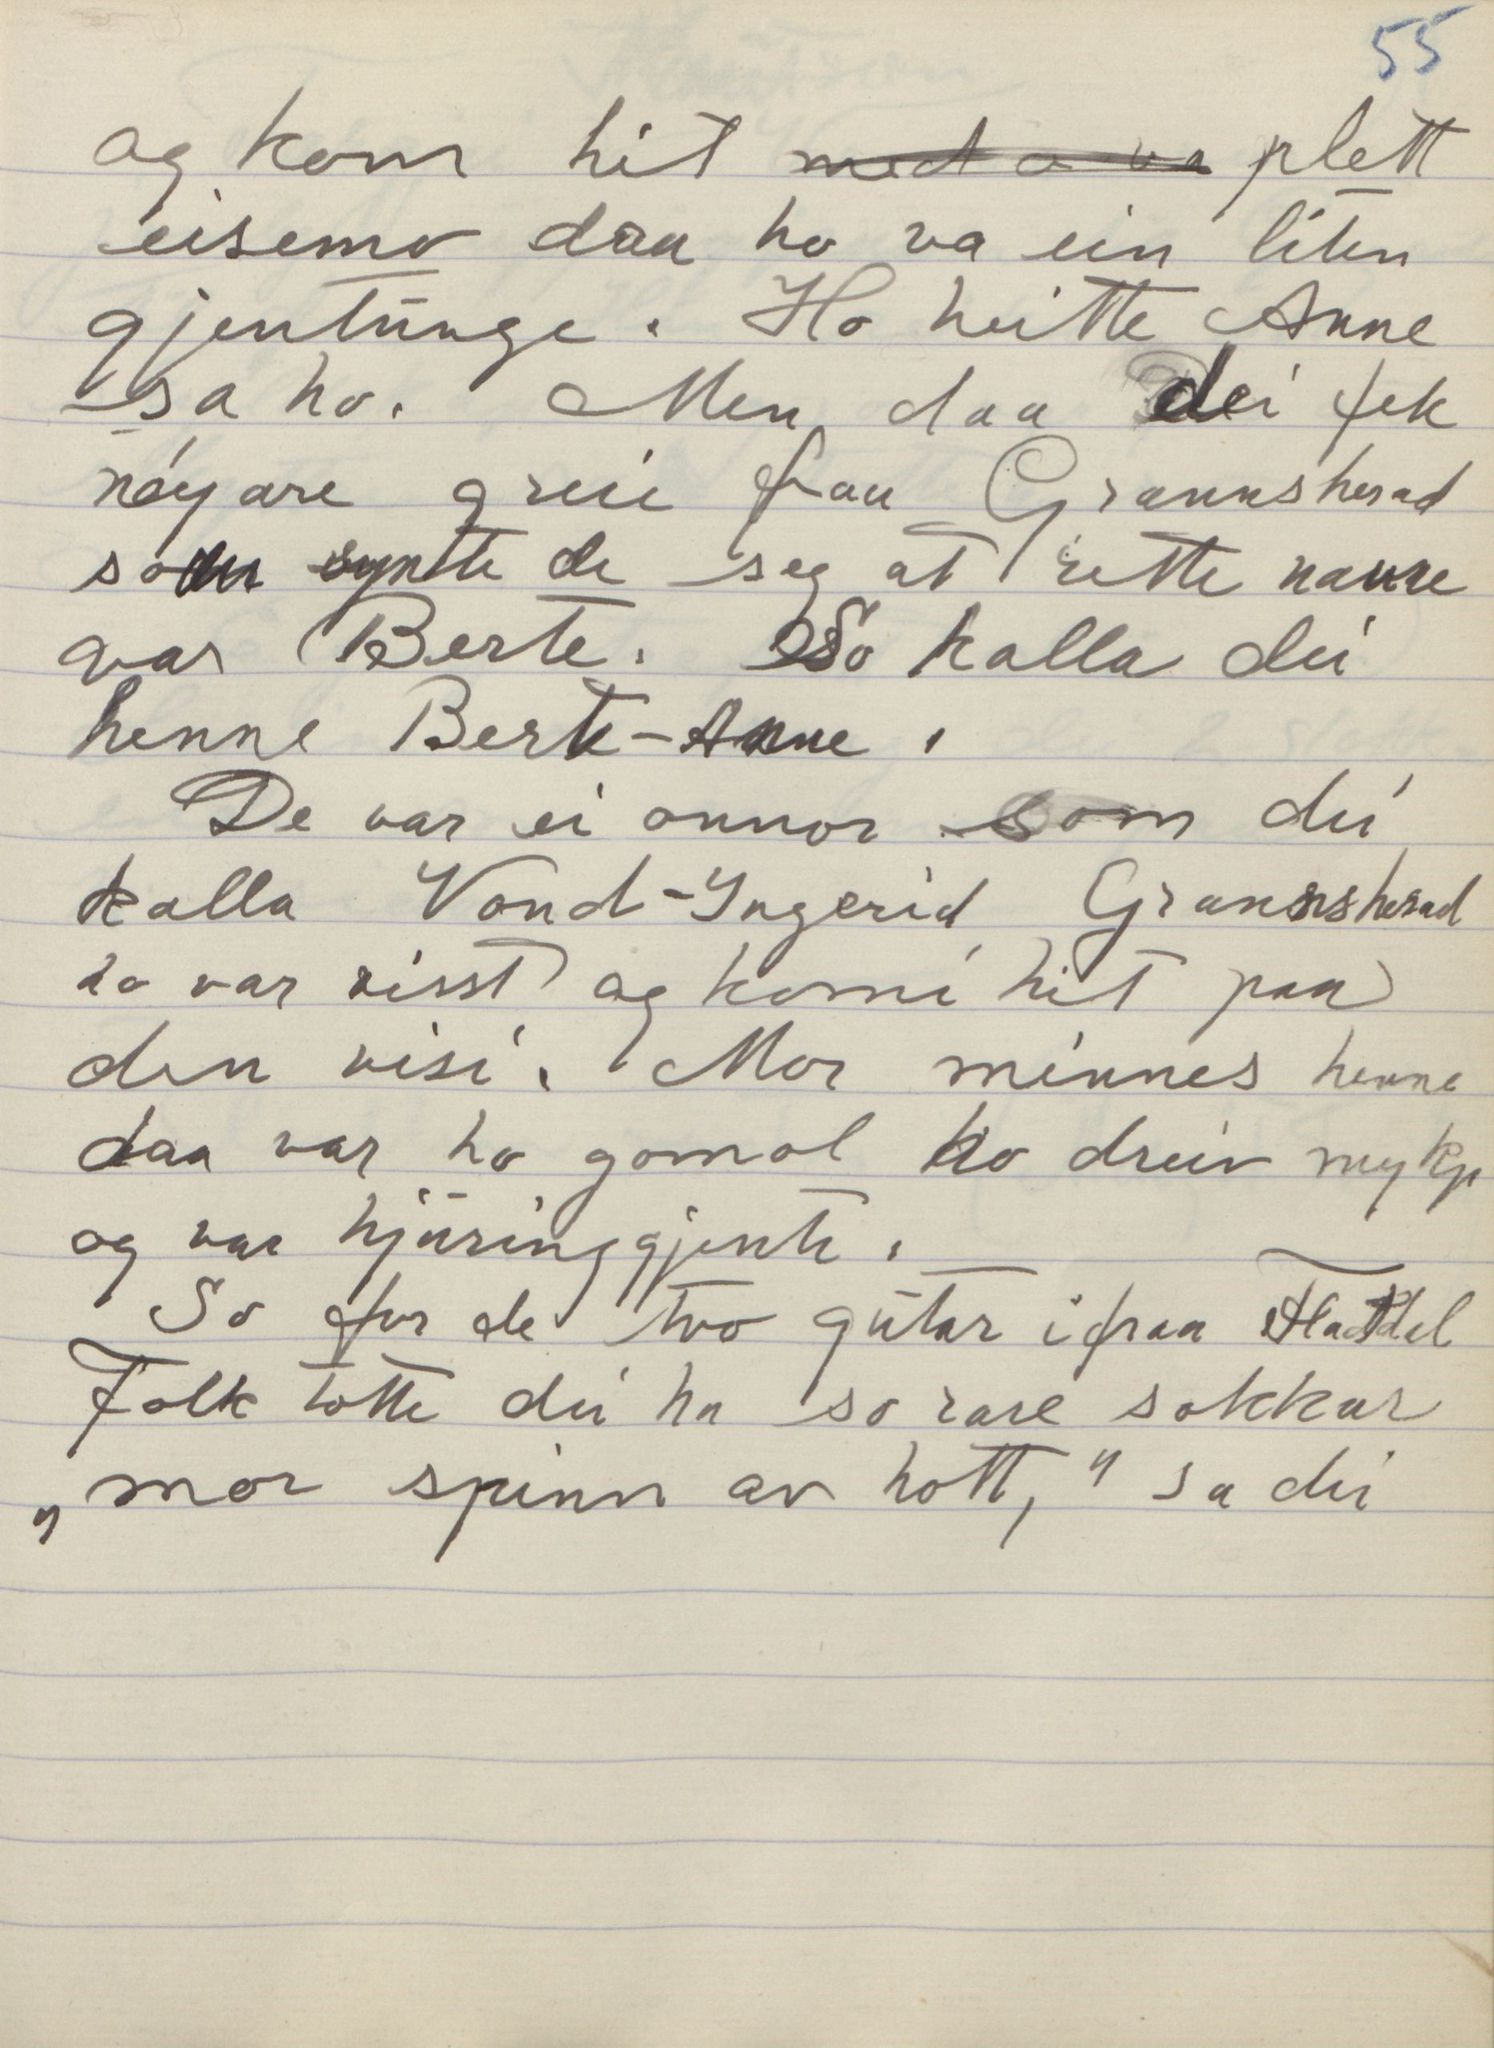 55
og kom hit med o va plett
eisemo daa ho va ein liten
gjentunge. Ho heitte Anne
sa ho. Men daa dei fek
nøyare greie fraa Grannsherad
so synte de seg at rette namne
var Berte. So kalla dei
henne Berte-Anne.
De var ei onnor som dei
kalla Vond-Ingerid Grannsherad
ho var visst og komi hit paa
den visi. Mor minnes henne
daa var ho gomol ho dreiv mykje
og var hjuringgjente.
So for de two gutar ifraa Flatdal
Folk totte dei ha so rare sokkar
„mor spinn av hott," sa dei